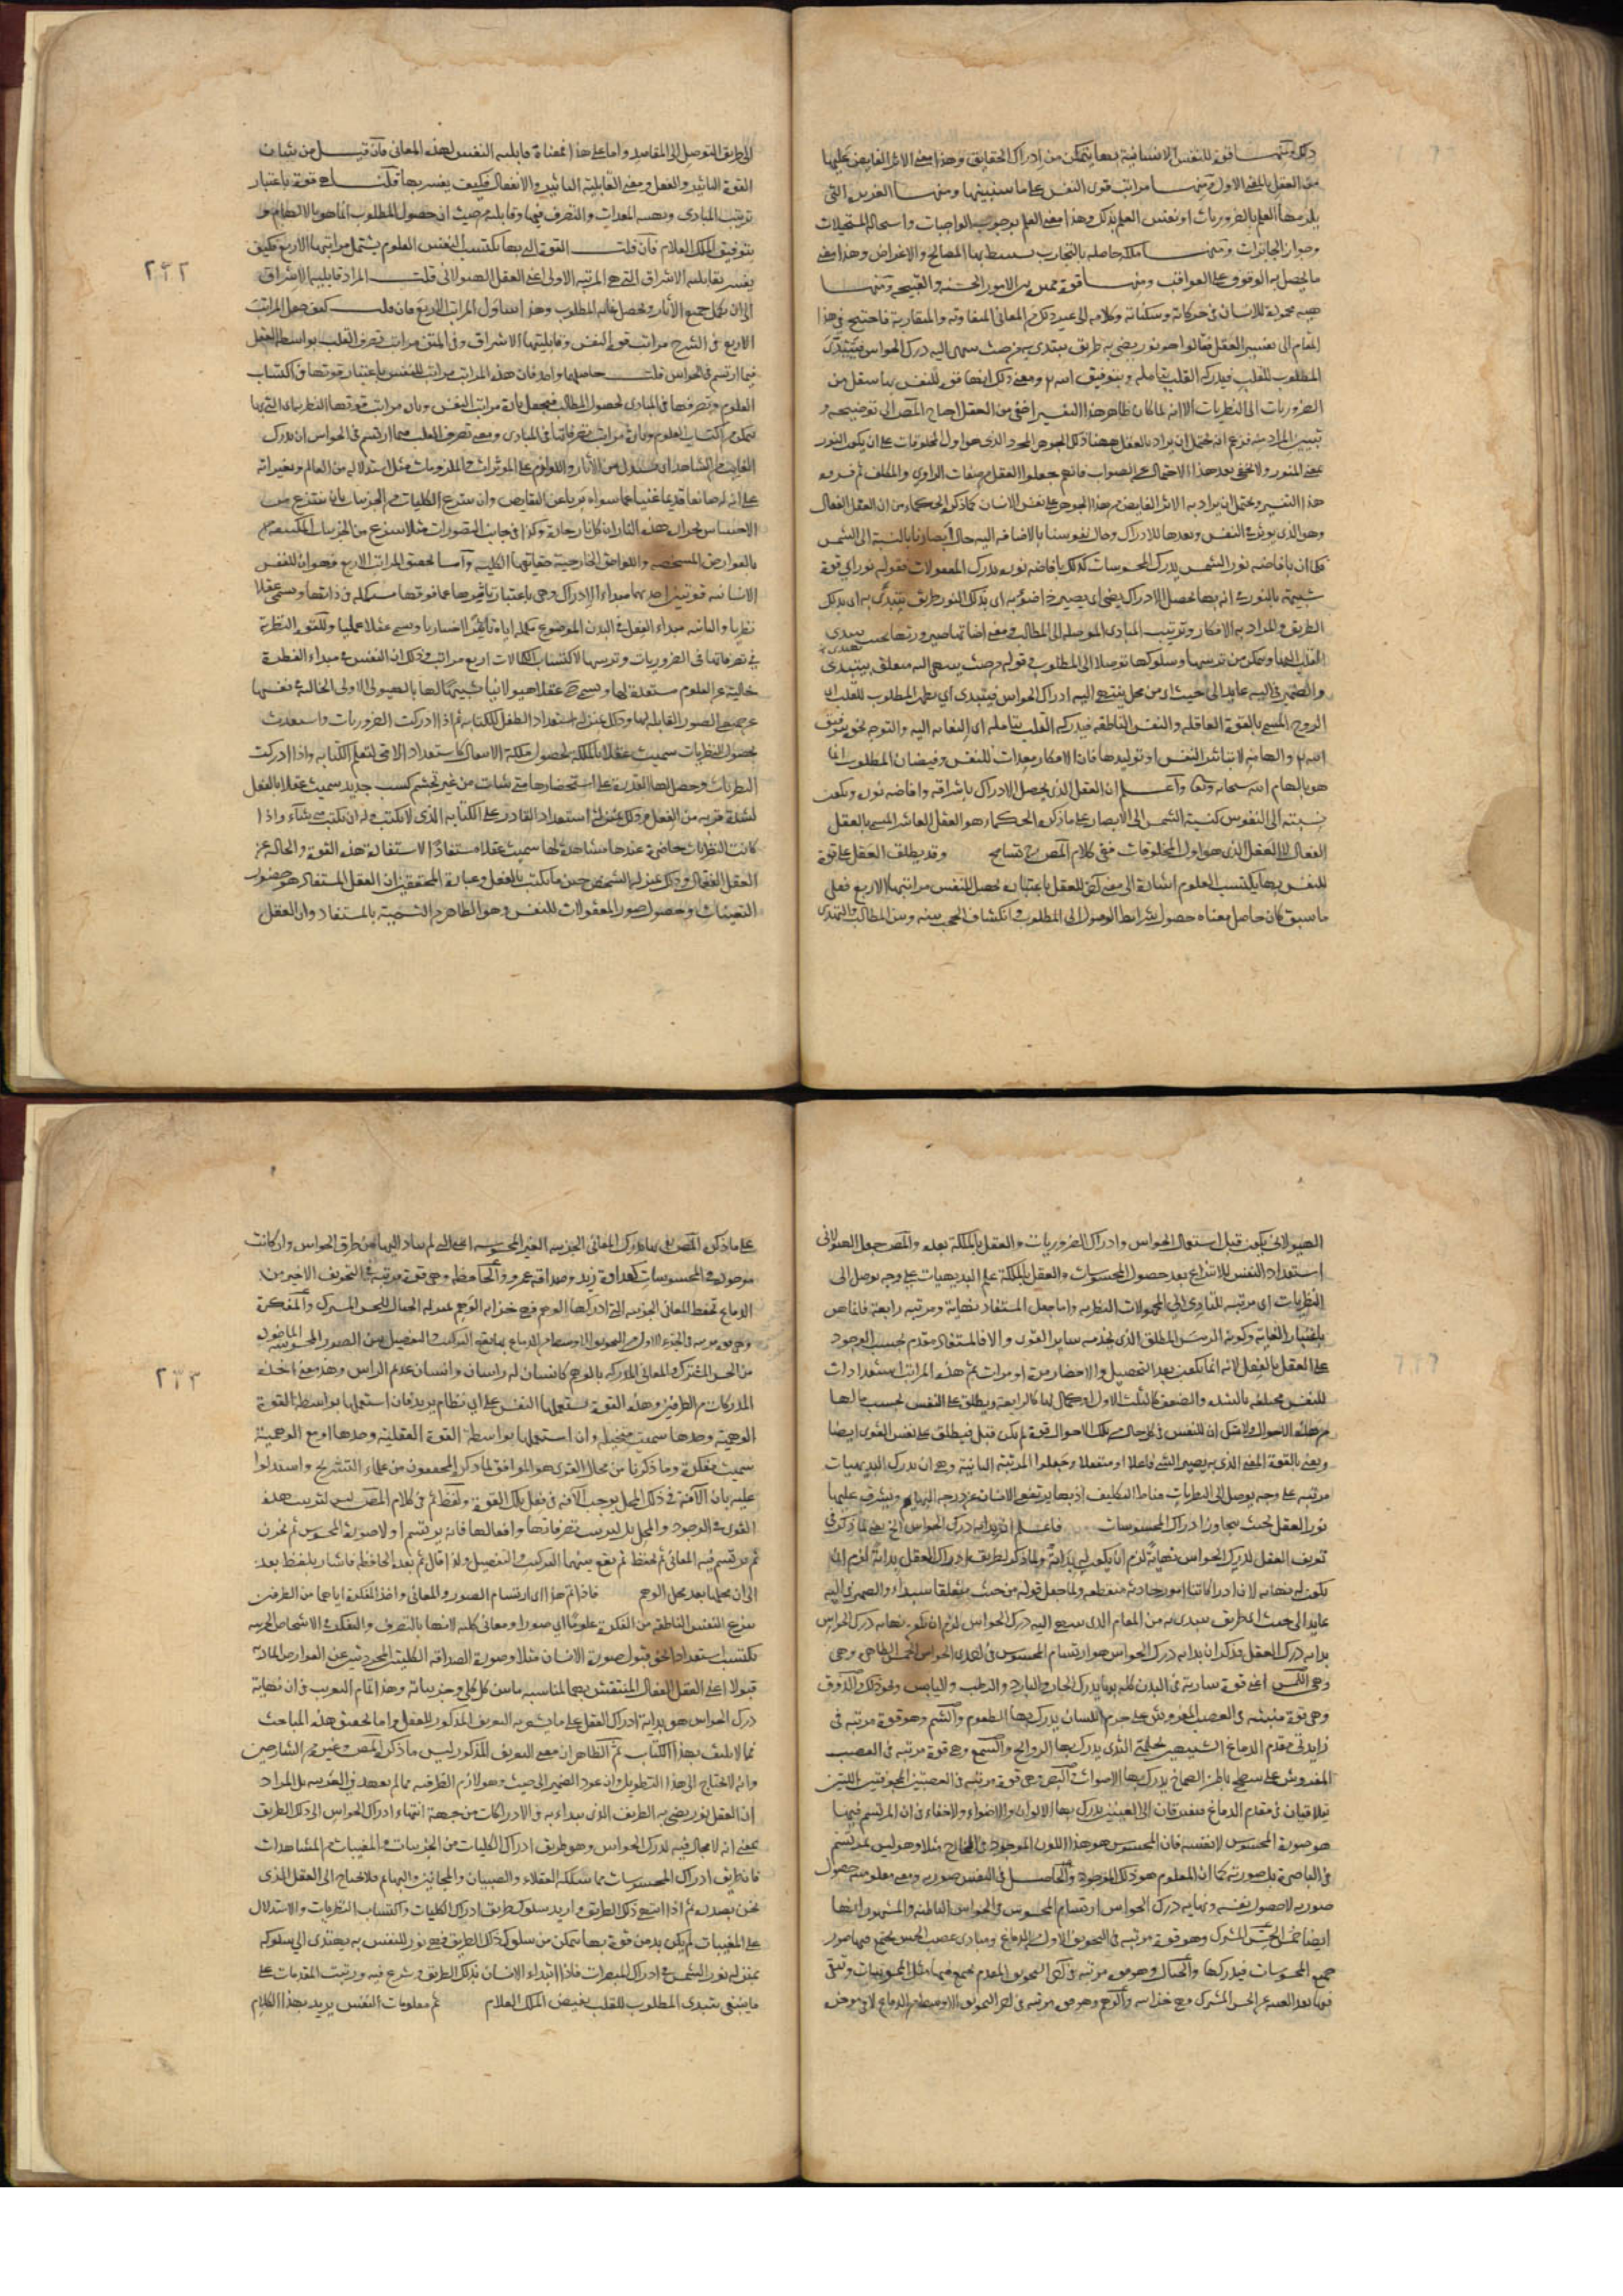 ذلك ومنها قوة للنفس الانسانية بها يتمكن من ادراك الحقايق وهذا معنى الاثر الفايض عليها
من العقل بالمعنى الاول ومنها مراتب قوى النفس على ما سنبينها ومنها الغريزة التي
يلزمها العلم بالضروريات او نفس العلم بذلك وهذا معنى العلم بوجوب الواجبات واستحالة المستحيلات
وجواز الجائزات ومنها ملكة حاصلة بالتجارب يستنبط بها المصالح والاغراض وهذا معنى
ما يحصل به الوقوف على العواقب ومنها قوة مميزة بين الامور الحسنة والقبيحة ومنها
هيئة محمودة للانسان في حركاته وسكناته وكلامه الى غير ذلك من المعاني المتفاوتة والمتقاربة فاحتيج في هذا
المقام الى تفسير العقل فقالوا هو نور يضيء به طريق يبتدى به من حيث ينتهي اليه درك الحواس فيتبدى
المطلوب للقلب فيدركه القلب بتأمله وبتوفيق الله ومعنى ذلك انها قوة للنفس بها ينتقل من
الضروريات الى النظريات الا انه لما كان ظاهر هذا التفسير اخفى من العقل احتاج المص الى توضيحه و
تبيين المراد منه فزعم انه يحتمل ان يراد بالعقل ههنا ذلك الجوهر المجرد الذي هو اول المخلوقات على ان يكون النور
بمعنى المنور ولا يخفى بعد هذا الاحتمال عن الصواب فانهم جعلوا العقل من صفات الراوي والمكلف ثم فسروه
هذا التفسير ويحتمل ان يراد به الاثر الفايض من هذا الجوهر على نفس الانسان كما ذكره الحكماء من ان العقل الفعال
وهو الذي يؤثر في النفس ويعدها للادراك وحال نفوسنا بالاضافة اليه حال أبصارنا بالنسبة الى الشمس
فكما ان بافاضة نور الشمس يدرك المحسوسات كذلك بافاضة نوره يدرك المعقولات فقوله نور اي قوة
شبيهة بالنور في انه بها يحصل الادراك يضيء اي يصير ذا ضوء به اي بذلك النور طريق يبتدى به اي بذلك
الطريق والمراد به الافكار وترتيب المبادي الموصلة الى المطالب ومعنى اضاءتها صيرورتها بحيث يهتدي
القلب اليها ويتمكن من ترتيبها وسلوكها توصلا الى المطلوب وقوله من حيث ينتهي اليه متعلق بيبتدى
والضمير في اليه عايد الى حيث اي من محل ينتهي اليه ادراك الحواس فيتبدى اي يظهر المطلوب للقلب اي
الروح المسمى بالقوة العاقلة والنفس الناطقة فيدركه القلب بتأمله اي التفاته اليه والتوجه نحوه بتوفيق
الله والهامه لا بتاثير النفس او توليدها فان الافكار معدات للنفس وفيضان المطلوب انما
هو بالهام الله سبحانه وتعالى واعلم ان العقل الذي يحصل الادراك باشراقه وافاضة نوره ويكون
نسبته الى النفوس كنسبة الشمس الى الابصار على ما ذكره الحكماء هو العقل العاشر المسمى بالعقل
الفعال لا العقل الذي هو اول المخلوقات ففي كلام المص تسامح وقد يطلق العقل على قوة
للنفس بها يكتسب العلوم اشارة الى معنى آخر للعقل باعتباره يحصل للنفس مراتبها الاربع فعلى
ما سبق كان حاصل معناه حصول شرايط الوصول الى المطلوب وانكشاف الحجب بينه وبين المطالب والتهدي
الى طريق التوصل الى المقاصد واما على هذا فمعناه قابلية النفس لهذه المعاني فان قيل من شان
القوة التاثير والفعل ومعنى القابلية التاثر والانفعال فكيف يفسر بها قلنا هي قوة باعتبار
ترتيب المبادي وتهيئة المعدات والتصرف فيها وقابلية من حيث ان حصول المطلوب انما هو بالالهام و
بتوفيق الملك العلام فان قلت القوة التي بها تكتسب النفس العلوم يشتمل مراتبها الاربع فكيف
يفسر بقابلية الاشراق التي هي المرتبة الاولى اعني العقل الهيولاني قلت المراد قابليتها الاشراق
الى ان يكمل جميع الآثار ويحصل غاية المطلوب وهذا يتناول المراتب الاربع فان قلت كيف جعل المراتب
الاربع في الشرح مراتب قوة النفس وقابليتها الاشراق وفي المتن مراتب تصرف القلب بواسطة العقل
فيما ارتسم في الحواس قلت حاصلهما واحد فان هذه المراتب مراتب للنفس باعتبار قوتها في اكتساب
العلوم وتصرفها في المبادي لحصول المطالب فيجعل تارة مراتب النفس وتارة مراتب قوتها النظرية اي التي بها
يتمكن من اكتساب العلوم وتارة مراتب تصرفاتها في المبادي ومعنى تصرف القلب فيما ارتسم في الحواس ان يدرك
الغايب من الشاهد اي يستدل من الآثار واللوازم على المؤثرات والملزومات مثل استدلاله من العالم وتغيراته
على ان له صانعا قديما غنيا عما سواه بريا عن النقايص وان ينتزع الكليات من الجزئيات بان ينتزع من
الاحساس بحرارة هذه النار ان كل نار حارة وكذا في جانب التصورات مثلا ينتزع من الجزئيات المكتنفة
بالعوارض المشخصة واللواحق الخارجية حقايقها الكلية واما تحقيق المراتب الاربع فهو ان للنفس
الانسانية قوتين احديهما مبداء الادراك وهي باعتبار تاثيرها عما فوقها مستكملة في ذاتها وتسمى عقلا
نظريا والثانية مبداء الفعل في البدن الموضوع لتكمله اياه تأثيرا اختياريا وتسمى عقلا عمليا وللقوة النظرية
في تصرفاتها في الضروريات وترتيبها لاكتساب الكمالات اربع مراتب وذلك ان النفس في مبداء الفطرة
خالية عن العلوم مستعدة لها وتسمى ح عقلا هيولانيا تشبيها لها بالهيولى الاولى الخالية في نفسها
عن جميع الصور القابلة لها وذلك بمنزلة استعداد الطفل للكتابة ثم اذا ادركت الضروريات واستعدت
بحصول النظريات سميت عقلا بالملكة لحصول ملكة الانتقال كاستعداد الامي لتعلم الكتابة واذا ادركت
النظريات وحصل لها القدرة على استحضارها متى شاءت من غير تجشم كسب جديد سميت عقلا بالفعل
لشدة قربه من الفعل وذلك بمنزلة استعداد القادر على الكتابة الذي لا يكتب وله ان يكتب متى شاء واذا
كانت النظريات حاضرة عندها مشاهدة لها سميت عقلا مستفادا لاستفادة هذه القوة والحالة عن
العقل الفعال وذلك بمنزلة الشخص حين ما يكتب بالفعل وعبارة المحققين ان العقل المستفاد هو حضور
اليقينيات وحصول صور المعقولات للنفس وهو الظاهر من التسمية بالمستفاد وان العقل
٢٣٢
الهيولاني يكون قبل استعمال الحواس وادراك الضروريات والعقل بالملكة بعده والمص جعل الهيولاني
استعداد النفس للانتزاع بعد حصول المحسوسات والعقل بالملكة علم البديهيات على وجه يوصل الى
النظريات اي مرتبة للتادي الى المجهولات النظرية واما جعل المستفاد نهاية ومرتبة رابعة فانما هو
باعتبار الغاية وكونه الرئيس المطلق الذي يخدمه ساير القوى والا فالمستفاد مقدم بحسب الوجود
على العقل بالفعل لانه انما يكون بعد التحصيل والاحضار مرة او مرات ثم هذه المراتب استعدادات
للنفس مختلفة بالشدة والضعف كالثلث الاول او كمال لها كالرابعة ويطلق على النفس بحسب ما لها
من هذه الاحوال ولا شك ان للنفس في كل حال من تلك الاحوال قوة لم يكن قبل فيطلق على نفس القوى ايضا
ويعني بالقوة المعنى الذي به يصير الشيء فاعلا او منفعلا وجعلوا المرتبة الثانية وهي ان يدرك البديهيات
مرتبة على وجه يوصل الى النظريات مناط التكليف اذ بها يرتفع الانسان عن درجة البهايم ويشرق عليها
نور العقل بحيث يتجاوز ادراك المحسوسات فاعلم ان بداية درك الحواس الخ يعني لما ذكر في
تعريف العقل لدرك الحواس نهاية لزم ان يكون له بداية ولما ذكر لطريق ادراك العقل بداية لزم ان
يكون له نهاية لان ادراكاتنا امور حادثة منقطعة ولما جعل قوله من حيث متعلقا بيبتداء والضمير في اليه
عايدا الى حيث اي طريق يبتدى به من المقام الذي ينتهي اليه درك الحواس لزم ان يكون نهاية درك الحواس
بداية درك العقل فذكر ان بداية درك الحواس هو ارتسام المحسوس في احدى الحواس الخمس الظاهرة وهي
وهي اللمس اعني قوة سارية في البدن كله بها يدرك الحار والبارد والرطب واليابس ونحو ذلك والذوق
وهي قوة منبثة في العصب المفروش على جرم اللسان يدرك بها الطعوم والشم وهو قوة مرتبة في
زايدتي مقدم الدماغ الشبيهتين بحلمتي الثدي يدرك بها الروايح والسمع وهي قوة مرتبة في العصب
المفروش على سطح باطن الصماخ يدرك بها الاصوات والبصر وهي قوة مرتبة في العصبتين المجوفتين اللتين
يتلاقيان في مقدم الدماغ فيفترقان الى العينين يدرك بها الالوان والاضواء ولا خفاء في ان المرتسم فيها
هو صورة المحسوس لا نفسه فان المحسوس هو هذا اللون الموجود في الخارج مثلا وهو ليس بمرتسم
في الباصرة بل صورته كما ان المعلوم هو ذلك الموجود والحاصل في النفس صورته ومعنى معلوميته حصول
صورته لا حصول نفسه ونهاية درك الحواس ارتسام المحسوس في الحواس الباطنة والمشهور انها
ايضا خمس الحس المشترك وهو قوة مرتبة في التجويف الاول من الدماغ ومبادي عصب الحس يجتمع فيها صور
جميع المحسوسات فيدركها والخيال وهو قوة مرتبة في آخر التجويف المقدم يجتمع فيها مثل المحسوسات وتبقى
فيها بعد الغيبة عن الحس المشترك فهي خزانته والوهم وهو قوة مرتبة في آخر التجويف الاوسط من الدماغ لا في موخره
على ما ذكره المص بها يدرك المعاني الجزئية الغير المحسوسة اعني التي لم يتاد اليها من طرق الحواس وان كانت
موجودة في المحسوسات كعداوة زيد وصداقة عمرو والحافظة وهي قوة مرتبة في التجويف الاخير من
الدماغ تحفظ المعاني الجزئية التي ادركها الوهم فهي خزانة الوهم بمنزلة الخيال للحس المشترك والمفكرة
وهي قوة مرتبة في الجزء الاول من التجويف الاوسط من الدماغ بها يقع التركيب والتفصيل بين الصور المحسوسة الماخوذة
من الحس المشترك والمعاني المدركة بالوهم كانسان له راسان وانسان عديم الراس وهذا معنى اخذه
المدركات من الطرفين وهذه القوة يستعملها النفس على اي نظام يريد فان استعملها بواسطة القوة
الوهمية وحدها سميت متخيلة وان استعملها بواسطة القوة العقلية وحدها او مع الوهمية
سميت مفكرة وما ذكرنا من محال القوى هو الموافق لما ذكره المحققون من علماء التشريح واستدلوا
عليه بان الآفة في ذلك المحل يوجب الآفة في فعل تلك القوة ولفظ ثم في كلام المص ليس لترتيب هذه
القوى في الوجود والمحل بل لترتيب تصرفاتها وافعالها فانه يرتسم اولا صورة المحسوس ثم تخزن
ثم يرتسم فيه المعاني ثم تحفظ ثم يقع بينهما التركيب والتفصيل ولذا قال ثم بعده الحافظة فاشار بلفظ بعده
الى ان محلها بعد محل الوهم فاذا تم هذا اي ارتسام الصور والمعاني واخذ المفكرة اياها من الطرفين
ينتزع النفس الناطقة من المفكرة علوما اي صورا ومعاني كلية لانها بالتصرف والتفكر في الاشخاص الجزئية
تكتسب استعدادا نحو قبول صورة الانسان مثلا وصورة الصداقة الكلية المجردتين عن العوارض المادية
قبولا عن العقل الفعال المنتقش بهما لمناسبة ما بين كل كلي وجزئياته وهذا تمام التقريب في ان نهاية
درك الحواس هو بداية ادراك العقل على ما يشعر به التعريف المذكور للعقل واما تحقيق هذه المباحث
فما لا يليق بهذا الكتاب ثم الظاهر ان معنى التعريف المذكور ليس ما ذكره المص وغيره من الشارحين
وانه لا يحتاج الى هذا التطويل وان عود الضمير الى حيث وهو لازم الظرفية مما لم يعهد في العربية بل المراد
ان العقل نور يضيء به الطريق الذي يبتداء به في الادراكات من جهة انتهاء ادراك الحواس الى ذلك الطريق
بمعنى انه لا مجال فيه لدرك الحواس وهو طريق ادراك الكليات من الجزئيات والمغيبات من المشاهدات
فان طريق ادراك المحسوسات مما يسلكه العقلاء والصبيان والمجانين والبهايم فلا يحتاج الى العقل الذي
نحن بصدده ثم اذا انتهى ذلك الطريق واريد سلوك طريق ادراك الكليات واكتساب النظريات والاستدلال
على المغيبات لم يكن بد من قوة بها يتمكن من سلوك ذلك الطريق فهي نور للنفس به يهتدي الى سلوكه
بمنزلة نور الشمس في ادراك المبصرات فاذا ابتداء الانسان بذلك الطريق وشرع فيه ورتبت المقدمات على
ما ينبغي يتبدى المطلوب للقلب بفيض الملك العلام ثم معلومات النفس يريد بهذا الكلام
٢٣٣